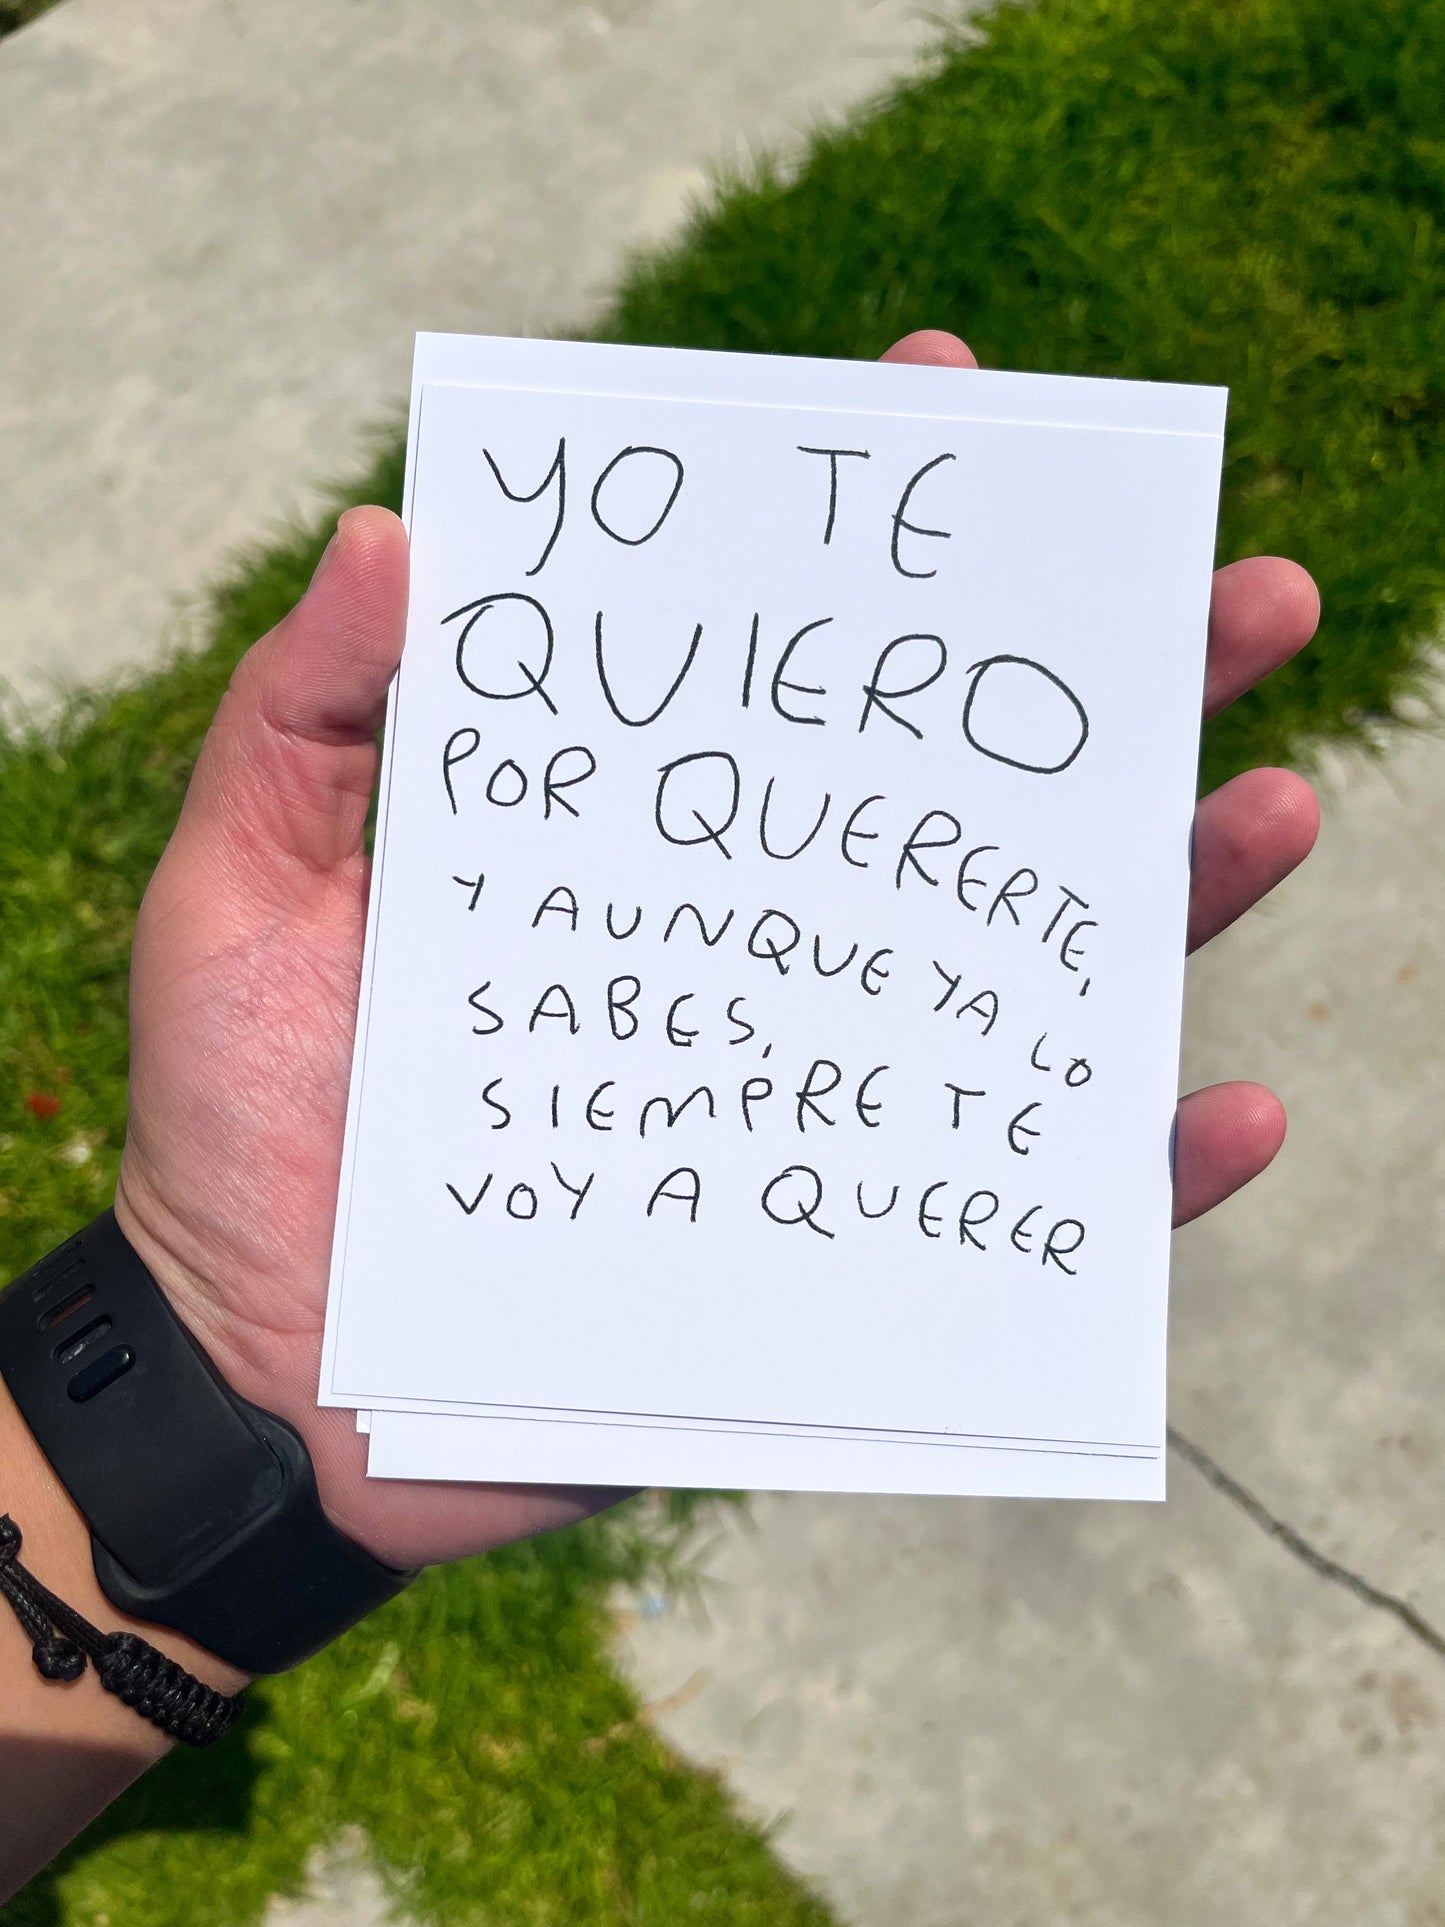 YO TE
QUIERO
POR QUERERTE,
Y AUNQUE YA LO
SABES,
SIEMPRE TE
VOY A QUERER